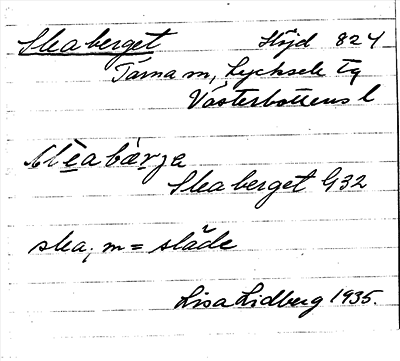 Sleaberget Höjd 824
Tärna sn, Lycksele tg
Västerbottens l
Sleaberget G32
slea, m = släde
Lisa Lidberg 1935.